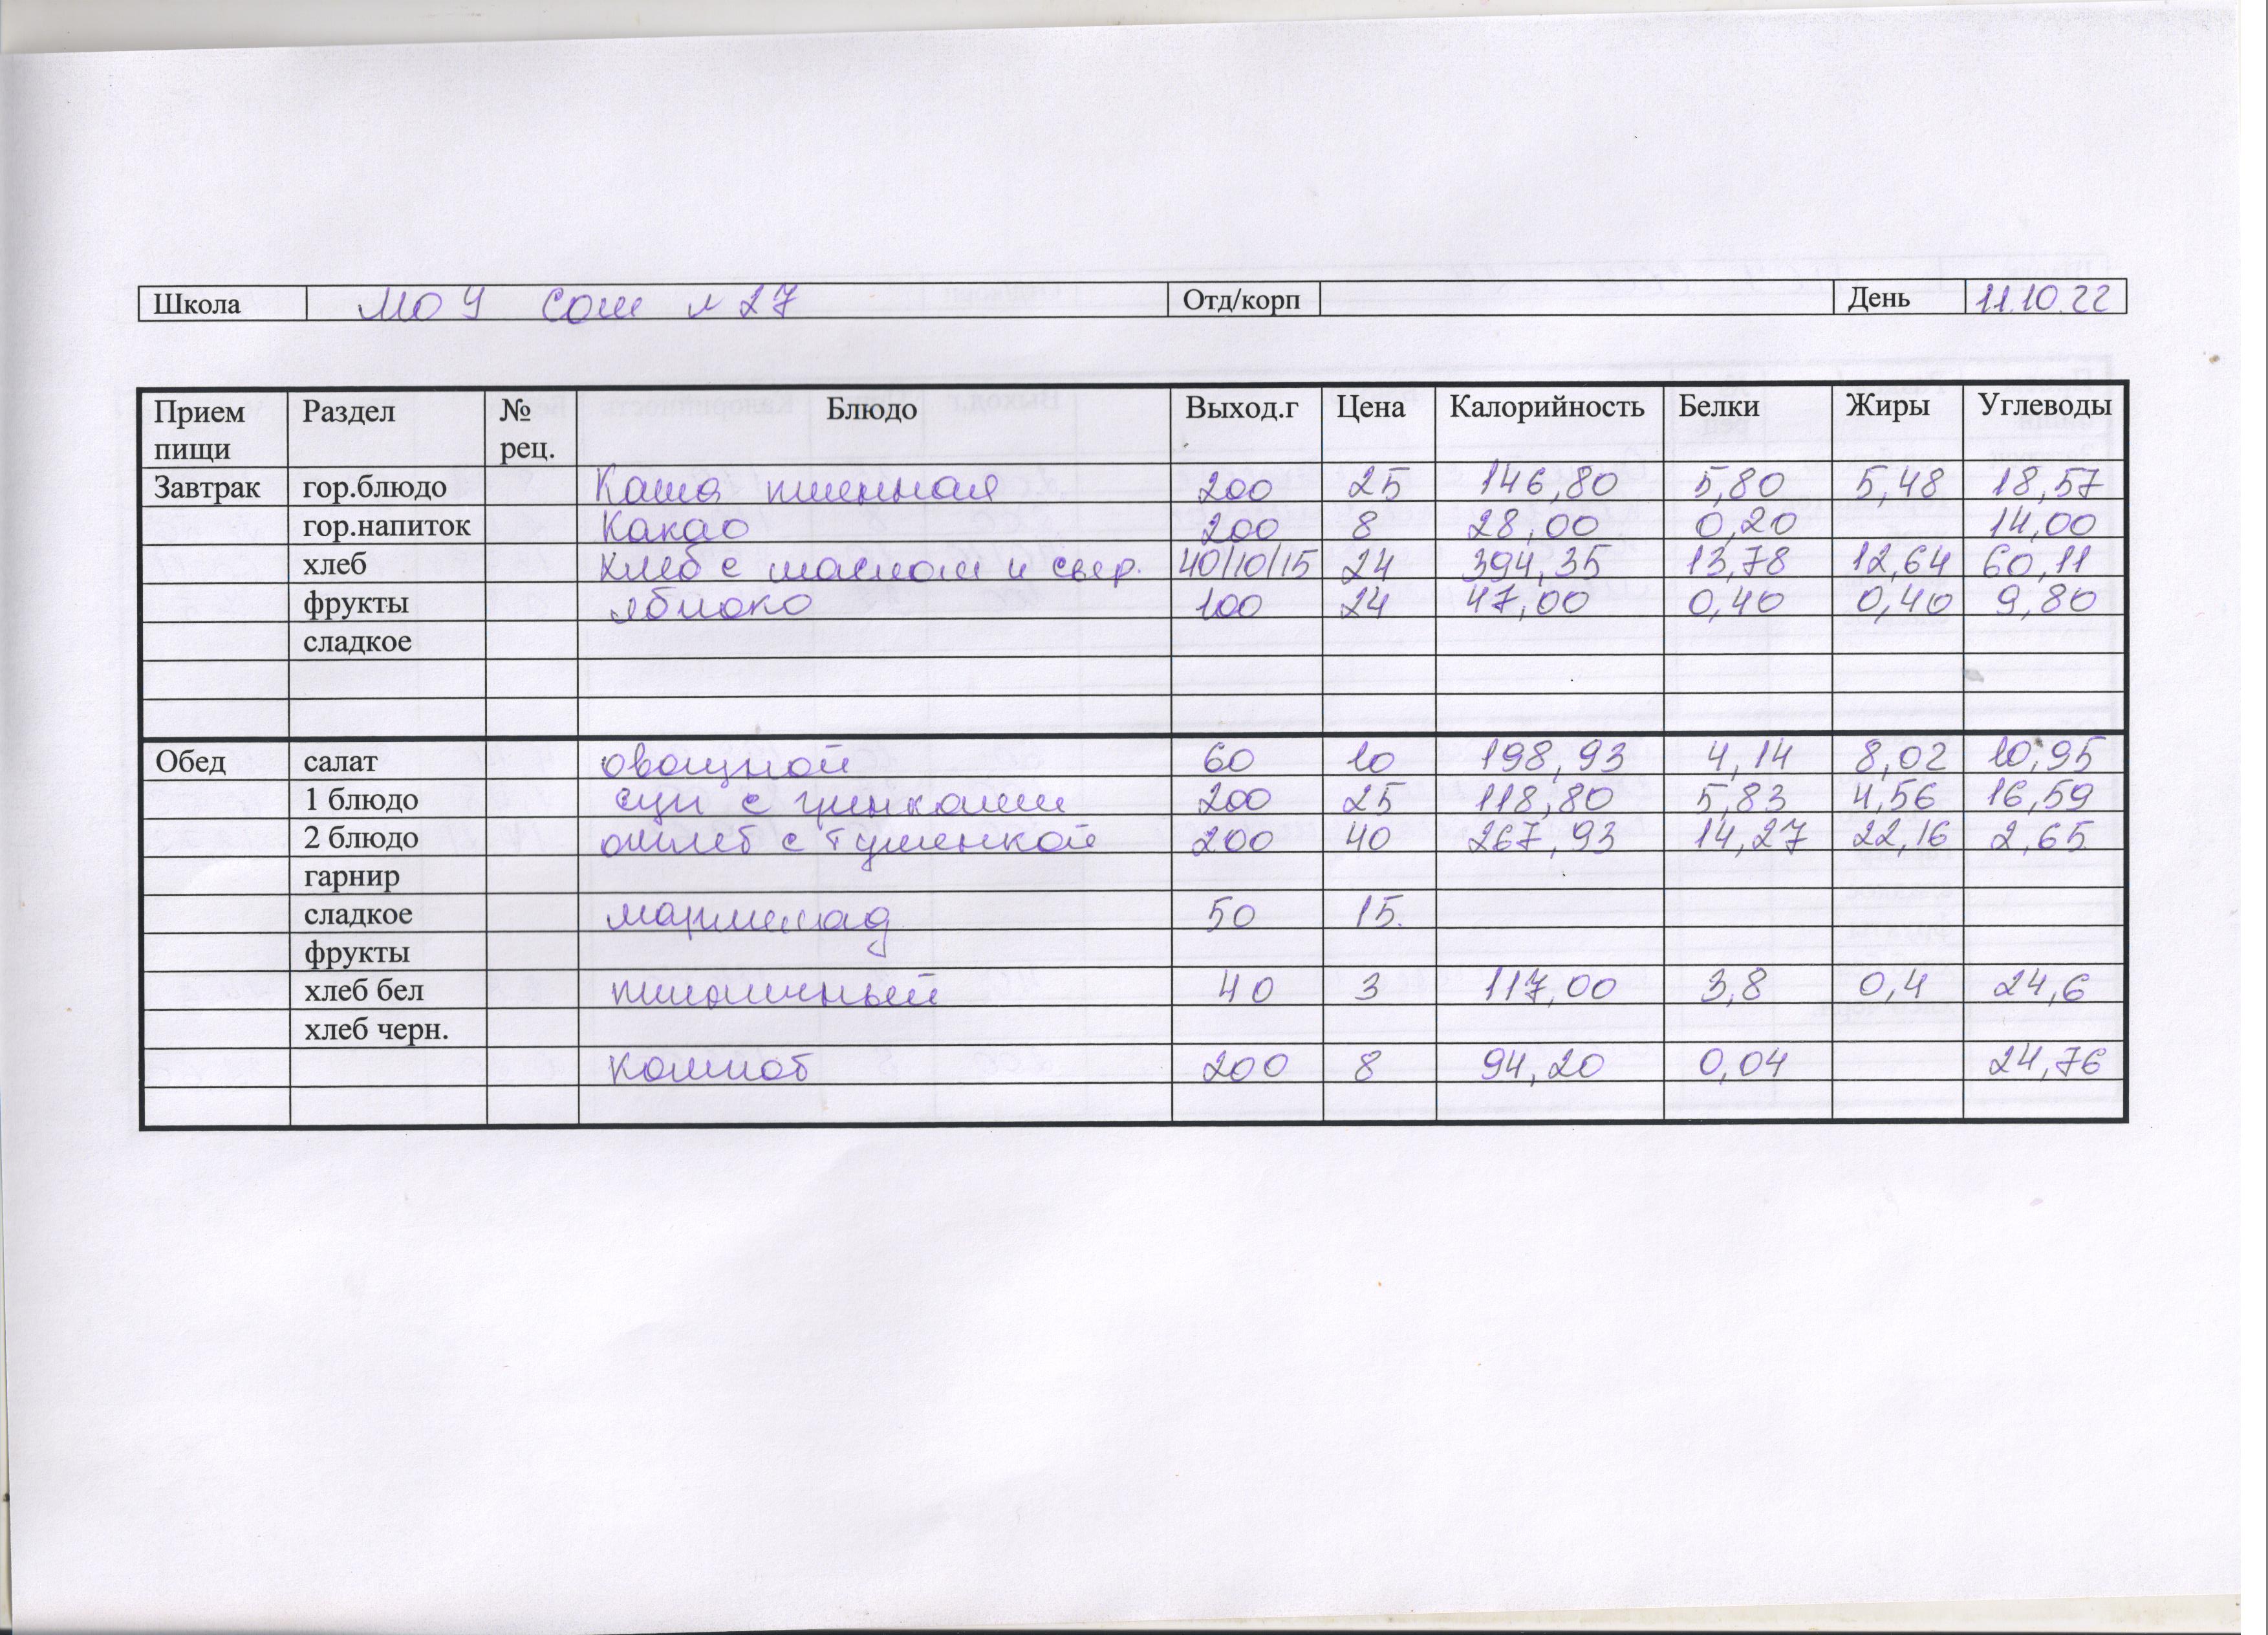 Школа МОУ СОШ №27 Отд/корп День 11.10.22
Прием пищи Раздел № рец. Блюдо Выход.г Цена Калорийность Белки Жиры Углеводы
Завтрак гор.блюдо Каша пшенная 200 25 146,80 5,80 5,48 18,57
гор.напиток Какао 200 8 28,00 0,20 14,00
хлеб Хлеб с маслом и сыр. 40/10/15 24 394,35 13,78 12,64 60,11
фрукты яблоко 100 24 47,00 0,40 0,40 9,80
сладкое
Обед салат овощной 60 10 198,93 4,14 8,02 10,95
1 блюдо суп с гренками 200 25 118,80 5,83 4,56 16,59
2 блюдо омлет с тушенкой 200 40 267,93 14,27 22,16 2,65
гарнир
сладкое мармелад 50 15.
фрукты
хлеб бел пшеничный 40 3 117,00 3,8 0,4 24,6
хлеб черн.
Компот 200 8 94,20 0,04 24,76